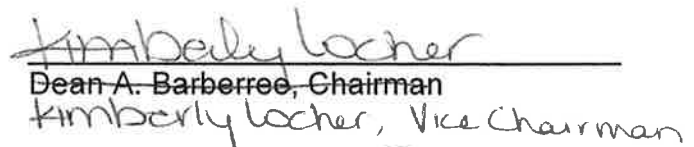 Kimberly Locher
Dean A. Barberree, Chairman
Kimberly Locher, Vice Chairman